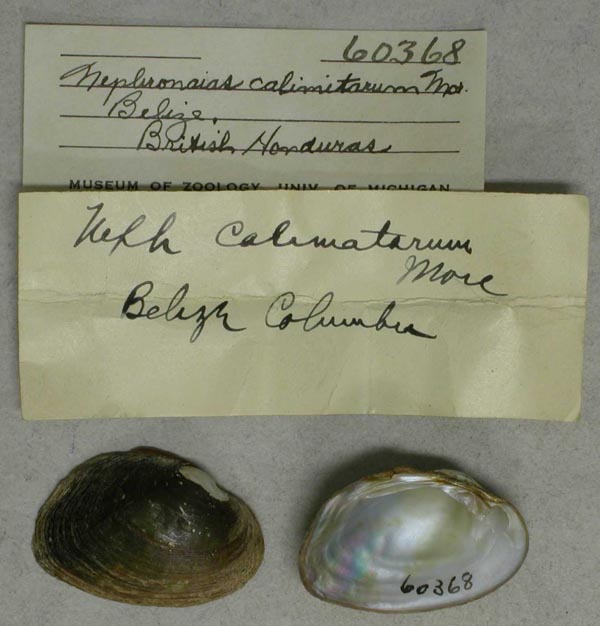 60368
Nephronaias calimitarum Mor.
Belize,
British Honduras
MUSEUM OF ZOOLOGY, UNIV. OF MICHIGAN
Neph calimatarum
More
Belize Columbia
60368